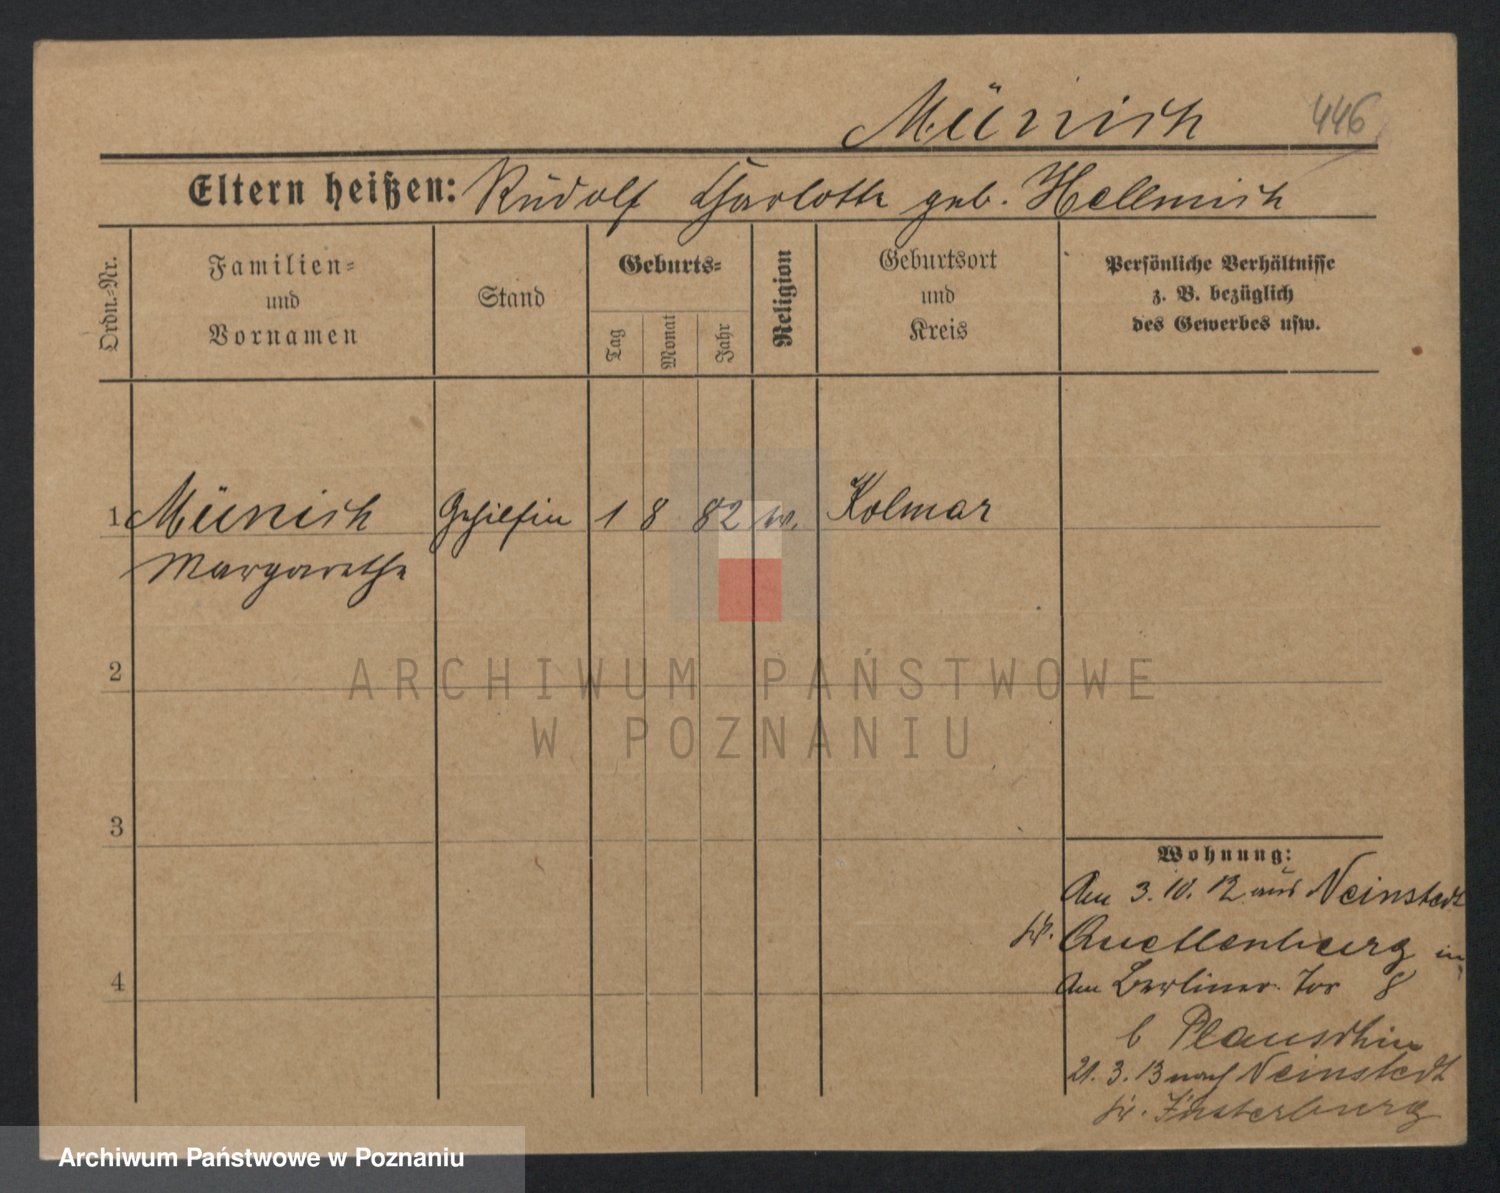 Münich 446
Eltern heißen: Rudolf Charlotte geb. Hellmich
Ordn.-Nr.
Familien-
und
Vornamen
Stand
Geburts-
Tag
Monat
Jahr
Religion
Geburtsort
und
Kreis
Persönliche Verhältnisse
z. B. bezüglich
des Gewerbes usw.
1 Münich Gehilfin 1 8 82 Kolmar
Margarethe
2
ARCHIWUM PAŃSTWOWE
W POZNANIU
3
Wohnung:
Am 3. 10. 12 aus Neinstedt
Kr. in
Am Berliner Tor 8
b
21. 3. 13 nach Neinstedt
Kr. Insterburg
4
Archiwum Państwowe w Poznaniu